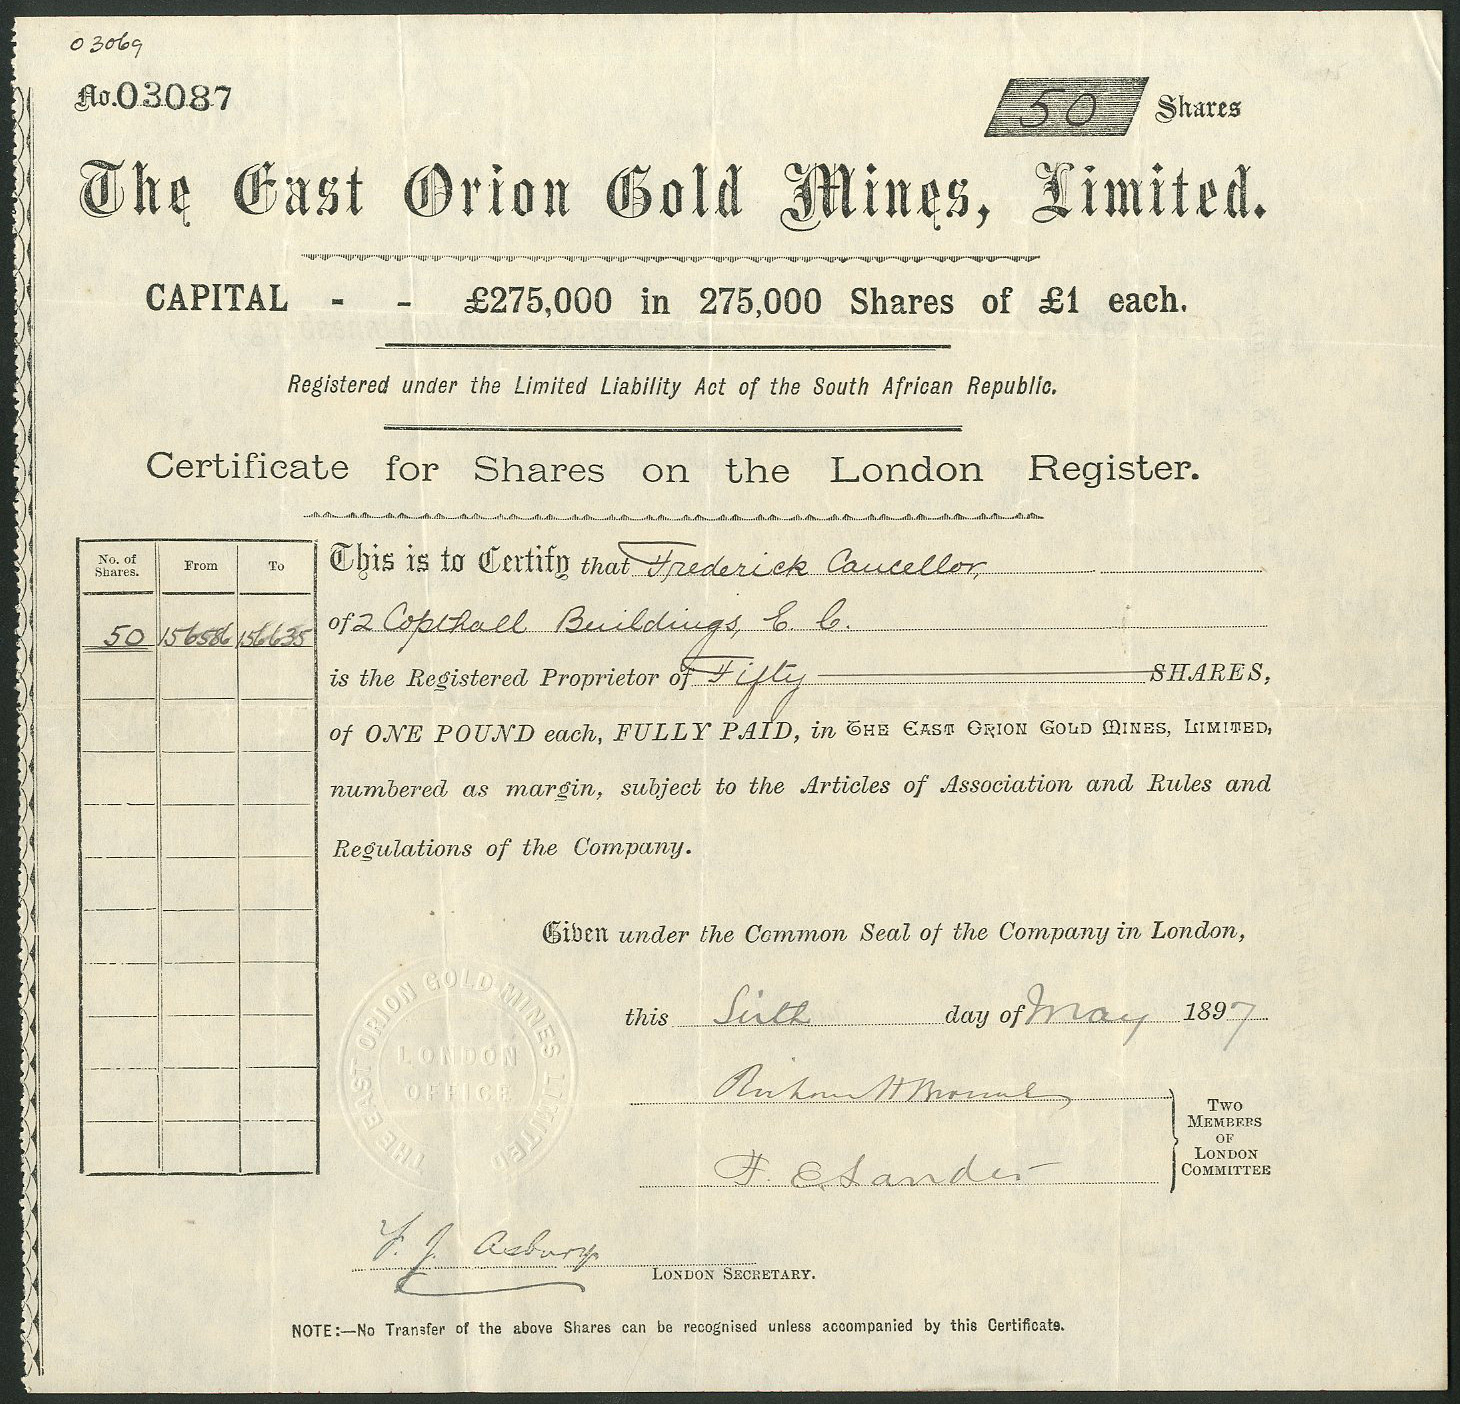 03069
No. 03087
50 Shares
The East Orion Gold Mines, Limited.
CAPITAL - - £275,000 in 275,000 Shares of £1 each.
Registered under the Limited Liability Act of the South African Republic.
Certificate for Shares on the London Register.
No. of Shares. From To
50 156586 156635
This is to Certify that Frederick Cancellor,
of 2 Copthall Buildings, E. C.
is the Registered Proprietor of Fifty SHARES,
of ONE POUND each, FULLY PAID, in THE EAST ORION GOLD MINES, LIMITED,
numbered as margin, subject to the Articles of Association and Rules and
Regulations of the Company.
Given under the Common Seal of the Company in London,
this Sixth day of May 1897
THE EAST ORION GOLD MINES LIMITED
LONDON
OFFICE
F. E. Sander
TWO
MEMBERS
OF
LONDON
COMMITTEE
F. J. Asbury
LONDON SECRETARY.
NOTE:—No Transfer of the above Shares can be recognised unless accompanied by this Certificate.